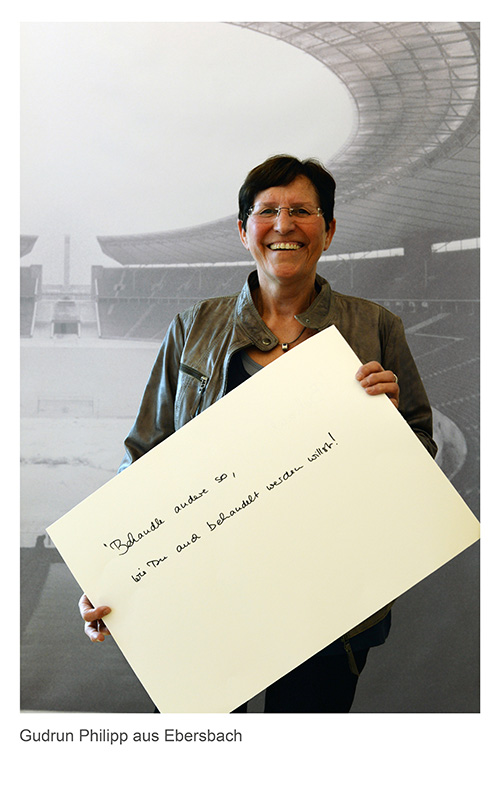 "Behandle andere so,
wie Du auch behandelt werden willst!
Gudrun Philipp aus Ebersbach